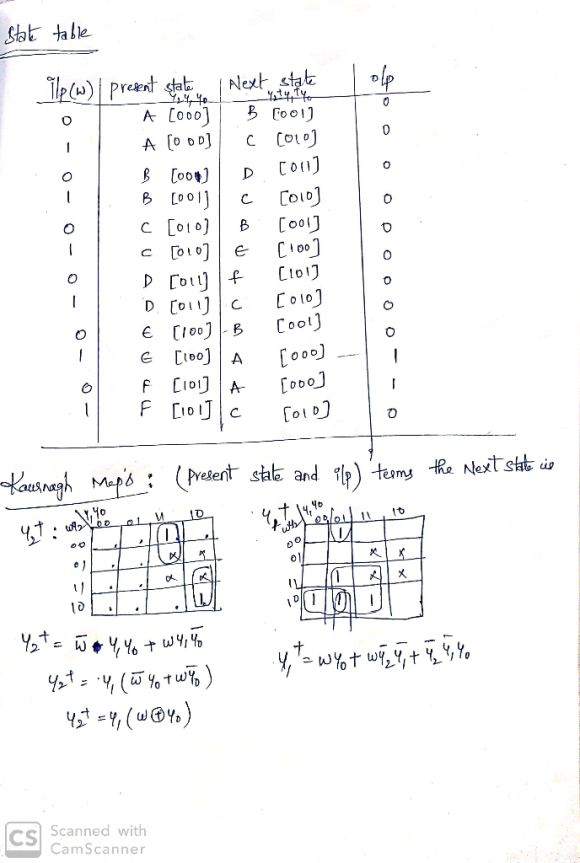 State table
i/p(w) present state Next state o/p
y₂y₁y₀ y₂⁺y₁⁺y₀⁺
0 A [000] B [001] 0
1 A [000] C [010] 0
0 B [001] D [011] 0
1 B [001] C [010] 0
0 C [010] B [001] 0
1 C [010] E [100] 0
0 D [011] f [101] 0
1 D [011] C [010] 0
0 E [100] B [001] 0
1 E [100] A [000] 1
0 F [101] A [000] 1
1 F [101] C [010] 0
Kaurnagh Map's : (present state and i/p) terms the Next state is
y₂⁺ : wy₂ y₁y₀ 00 01 11 10
00 . . 1 .
01 . . x x
11 . . x x
10 . . . 1
y₁⁺ y₁y₀ 00 01 11 10
00 1
01 x x
11 1 x x
10 1 1 1
y₂⁺ = w̅ y₁y₀ + wy₁y̅₀
y₂⁺ = y₁(w̅y₀ + wy̅₀)
y₂⁺ = y₁(w⊕y₀)
y₁⁺ = wy₀ + wy̅₂y̅₁ + y̅₂y̅₁y₀
CS Scanned with
CamScanner